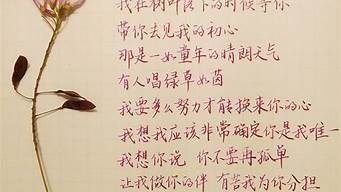 我在树叶落下的时候等你
带你去见我的初心
那是一如童年的晴朗天气
有人唱绿草如茵
我要多么努力才能换来你的心
我想我应该非常确定你是我唯一
我想你说 你不要再孤单
让我做你的伴 有苦我为你分担